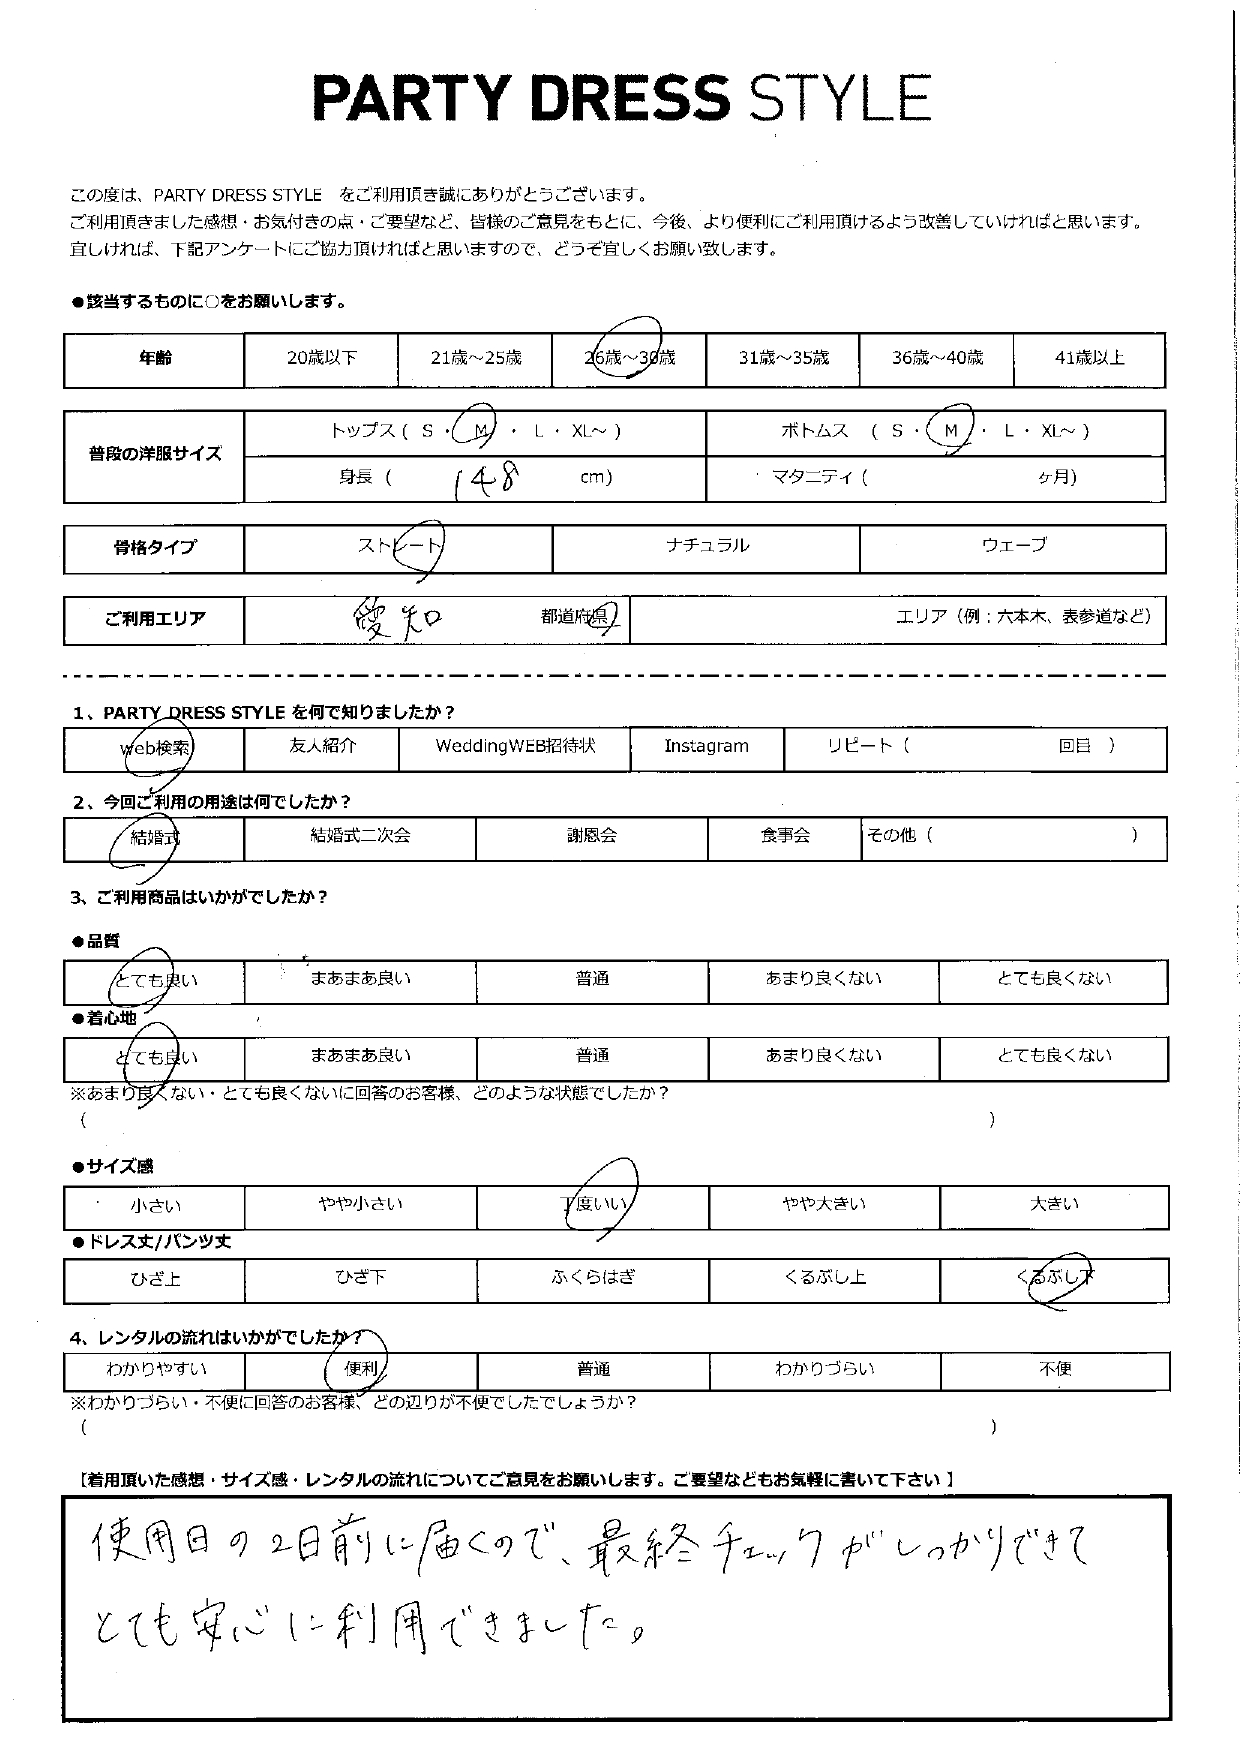 PARTY DRESS STYLE
この度は、PARTY DRESS STYLE をご利用頂き誠にありがとうございます。
ご利用頂きました感想・お気付きの点・ご要望など、皆様のご意見をもとに、今後、より便利にご利用頂けるよう改善していければと思います。
宜しければ、下記アンケートにご協力頂ければと思いますので、どうぞ宜しくお願い致します。
●該当するものに○をお願いします。
年齢 20歳以下 21歳～25歳 26歳～30歳 31歳～35歳 36歳～40歳 41歳以上
普段の洋服サイズ トップス ( S ・ M ・ L ・ XL～ ) ボトムス ( S ・ M ・ L ・ XL～ )
身長 ( 148 cm) マタニティ ( ヶ月)
骨格タイプ ストレート ナチュラル ウェーブ
ご利用エリア 愛知 都道府県 エリア（例：六本木、表参道など）
1、PARTY DRESS STYLE を何で知りましたか？
web検索 友人紹介 WeddingWEB招待状 Instagram リピート ( 回目 )
2、今回ご利用の用途は何でしたか？
結婚式 結婚式二次会 謝恩会 食事会 その他 ( )
3、ご利用商品はいかがでしたか？
●品質
とても良い まあまあ良い 普通 あまり良くない とても良くない
●着心地
とても良い まあまあ良い 普通 あまり良くない とても良くない
※あまり良くない・とても良くないに回答のお客様、どのような状態でしたか？
( )
●サイズ感
小さい やや小さい 丁度いい やや大きい 大きい
●ドレス丈/パンツ丈
ひざ上 ひざ下 ふくらはぎ くるぶし上 くるぶし下
4、レンタルの流れはいかがでしたか？
わかりやすい 便利 普通 わかりづらい 不便
※わかりづらい・不便に回答のお客様、どの辺りが不便でしたでしょうか？
( )
【着用頂いた感想・サイズ感・レンタルの流れについてご意見をお願いします。ご要望などもお気軽に書いて下さい 】
使用日の2日前に届くので、最終チェックがしっかりできて
とても安心に利用できました。